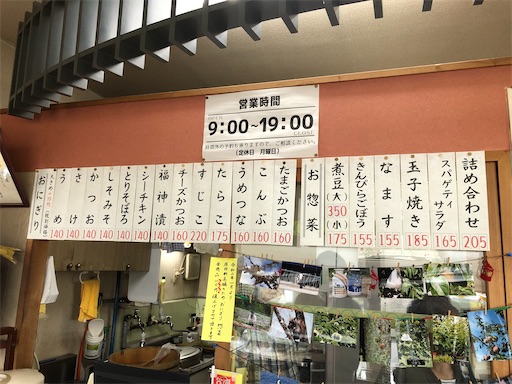 営業時間
9:00~19:00
CLOSE
時間外の予約も承りますので、ご相談ください。
(定休日 月曜日)
おにぎり
うめ 140
さけ 140
かつお 140
しそみそ 140
とりそぼろ 140
シーチキン 140
福神漬 140
チーズかつお 160
すじこ 220
たらこ 175
うめつな 160
こんぶ 160
たまごかつお 160
お惣菜
煮豆(大)350
(小)175
きんぴらごぼう 155
なます 155
玉子焼き 185
スパゲティサラダ 165
詰め合わせ 205